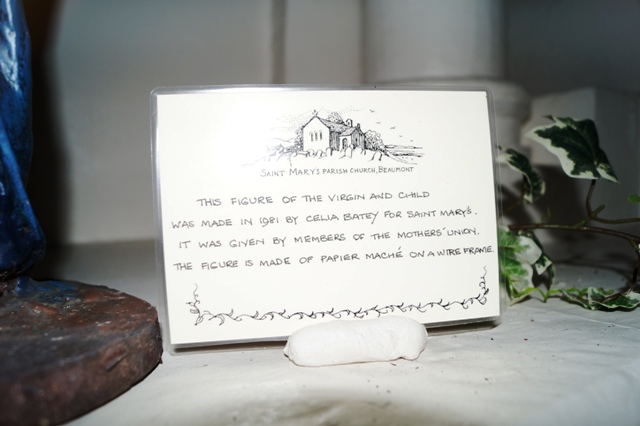 SAINT MARY'S PARISH CHURCH, BEAUMONT
THIS FIGURE OF THE VIRGIN AND CHILD
WAS MADE IN 1981 BY CELIA BATEY FOR SAINT MARY'S.
IT WAS GIVEN BY MEMBERS OF THE MOTHERS' UNION.
THE FIGURE IS MADE OF PAPIER MACHÉ ON A WIRE FRAME.